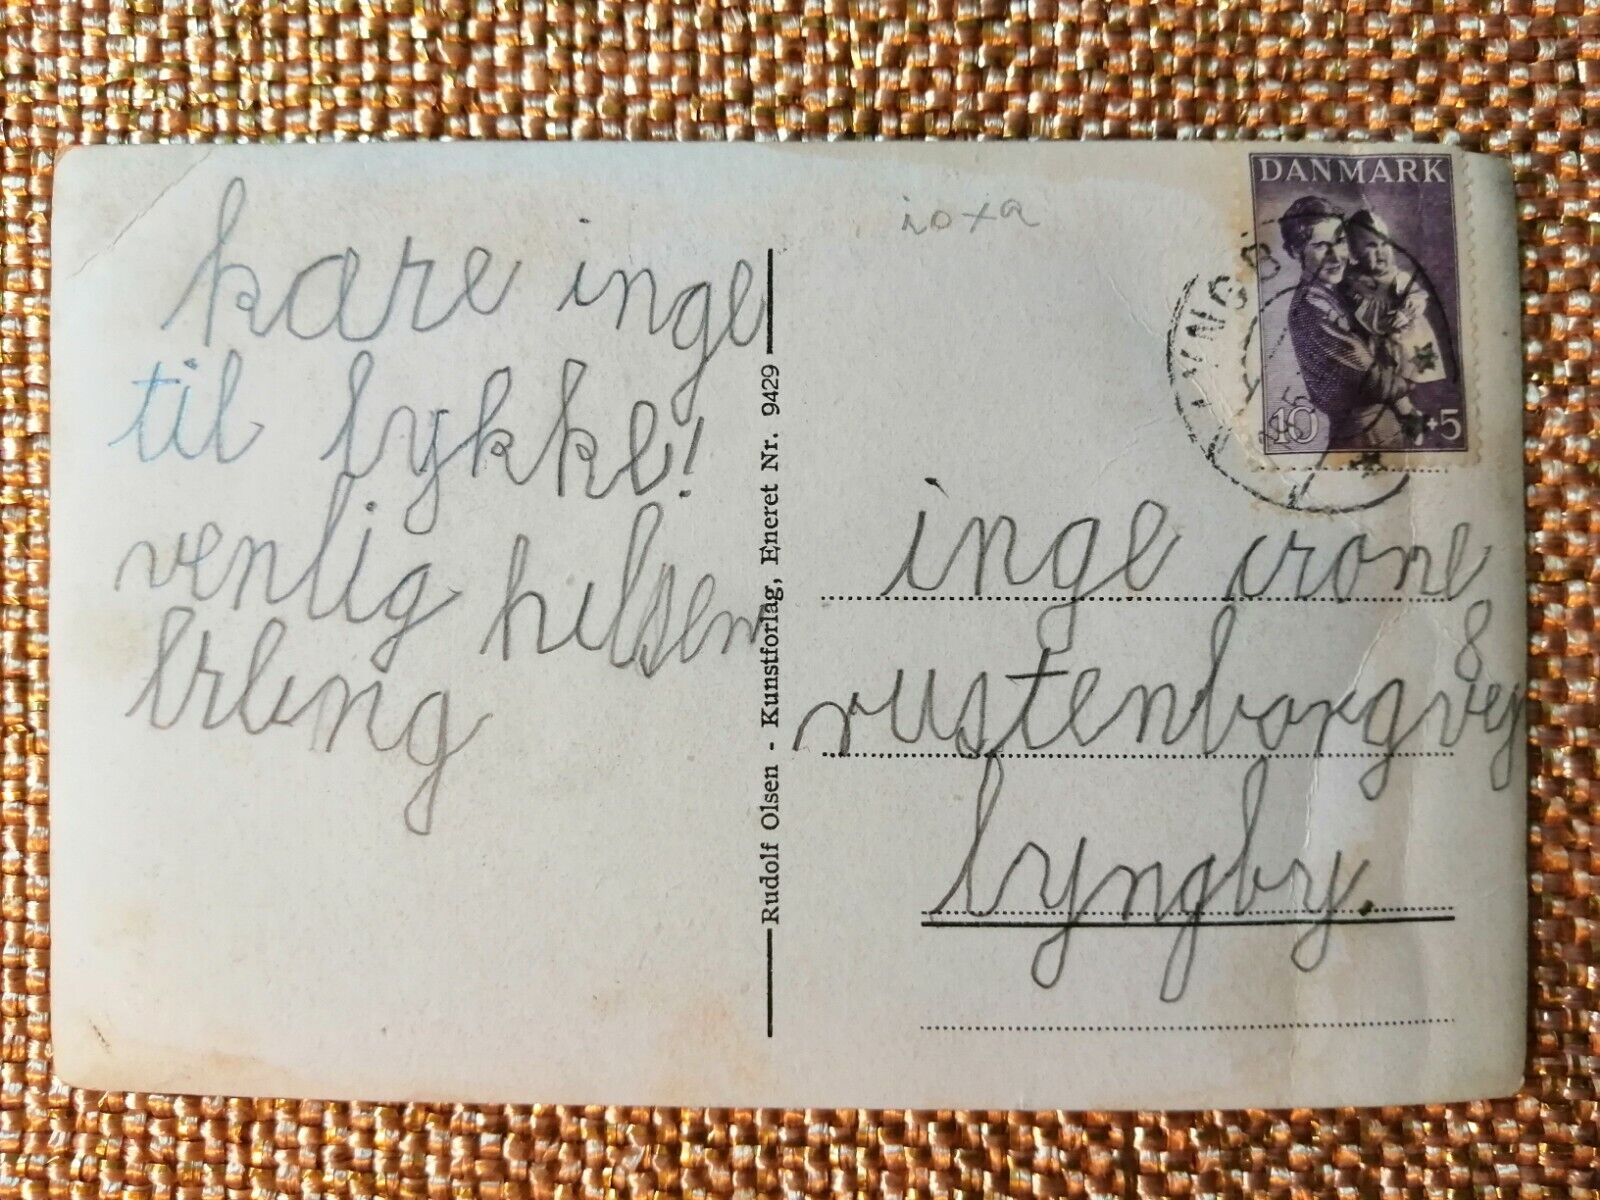 kære inge
til lykke!
venlig hilsen
Erling
Rudolf Olsen - Kunstforlag, Eneret Nr. 9429
ioxa
DANMARK
10 +5
LYNGBY
inge crone
8
rustenborgvej
lyngby.